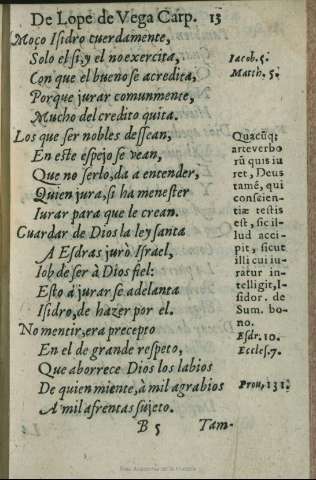 De Lope de Vega Carp. 13
Moço Isidro cuerdamente,
Solo el si, y el no exercita,
Con que el bueno se acredita,
Porque jurar comunmente,
Mucho del credito quita.
Los que ser nobles dessean,
En este espejo se vean,
Que no serlo, da a entender,
Quien jura, si ha menester
Iurar para que le crean.
Guardar de Dios la ley santa
A Esdras jurò Israel,
Iob de ser à Dios fiel:
Esto à jurar se adelanta
Isidro, de hazer por el.
No mentir, era precepto
En el de grande respeto,
Que aborrece Dios los labios
De quien miente, à mil agrabios
A mil afrentas sujeto.
B 5 Tam-
Iacob. 5.
Matth. 5.
Quacũq;
arte verbo
rũ quis iu
ret, Deus
tamẽ, qui
conscien-
tiæ testis
est, sic il-
lud acci-
pit, sicut
illi cui iu-
ratur in-
telligit, I-
sidor. de
Sum. bo-
no.
Esdr. 10.
Eccles. 7.
Prou, 131.
Real Academia de la Historia